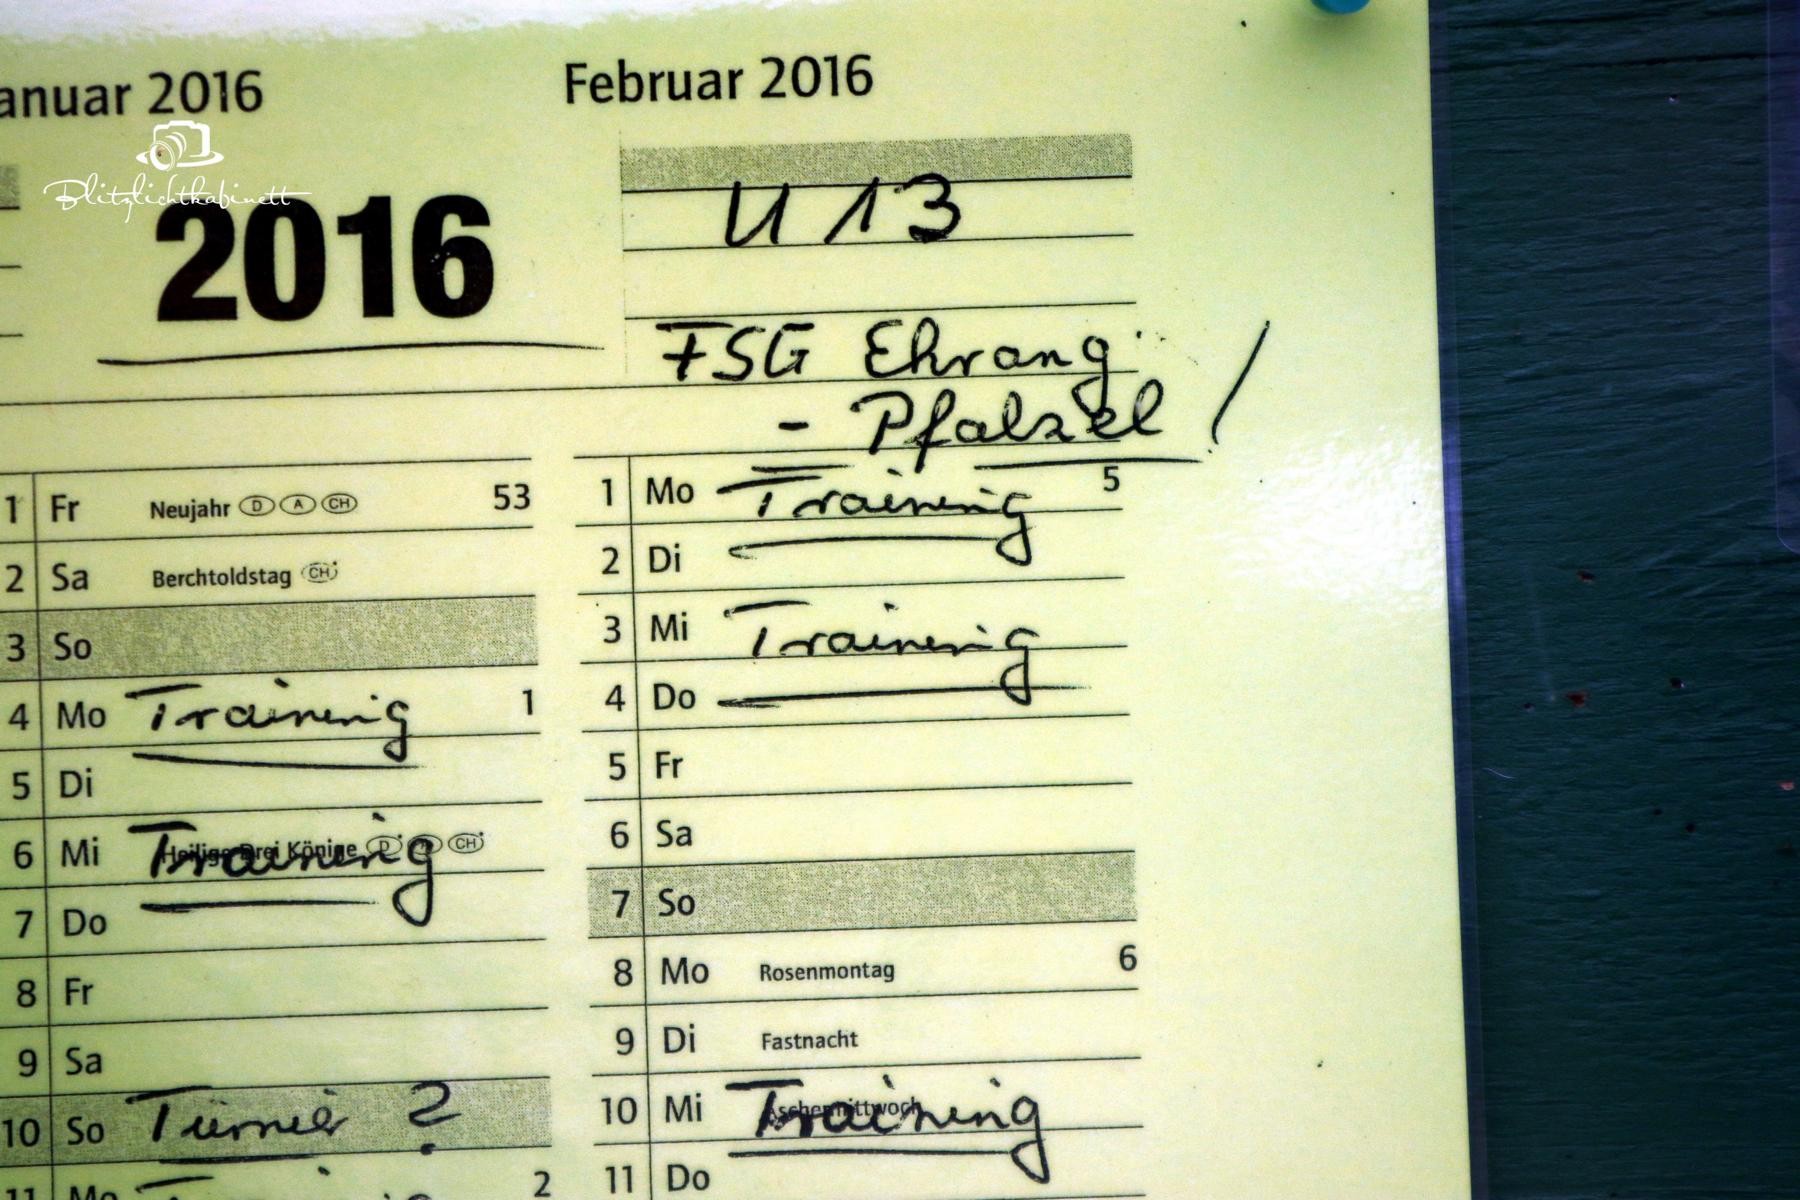 anuar 2016
Februar 2016
Blitzlichtkabinett
2016
U 13
FSG Ehrang
- Pfalzel !
1 Fr Neujahr D A CH 53
2 Sa Berchtoldstag CH
3 So
4 Mo Training 1
5 Di
6 Mi Heilige Drei Könige D A CH Training
7 Do
8 Fr
9 Sa
10 So Turnier ?
11 Mo 2
1 Mo Training 5
2 Di
3 Mi Training
4 Do
5 Fr
6 Sa
7 So
8 Mo Rosenmontag 6
9 Di Fastnacht
10 Mi Aschermittwoch Training
11 Do